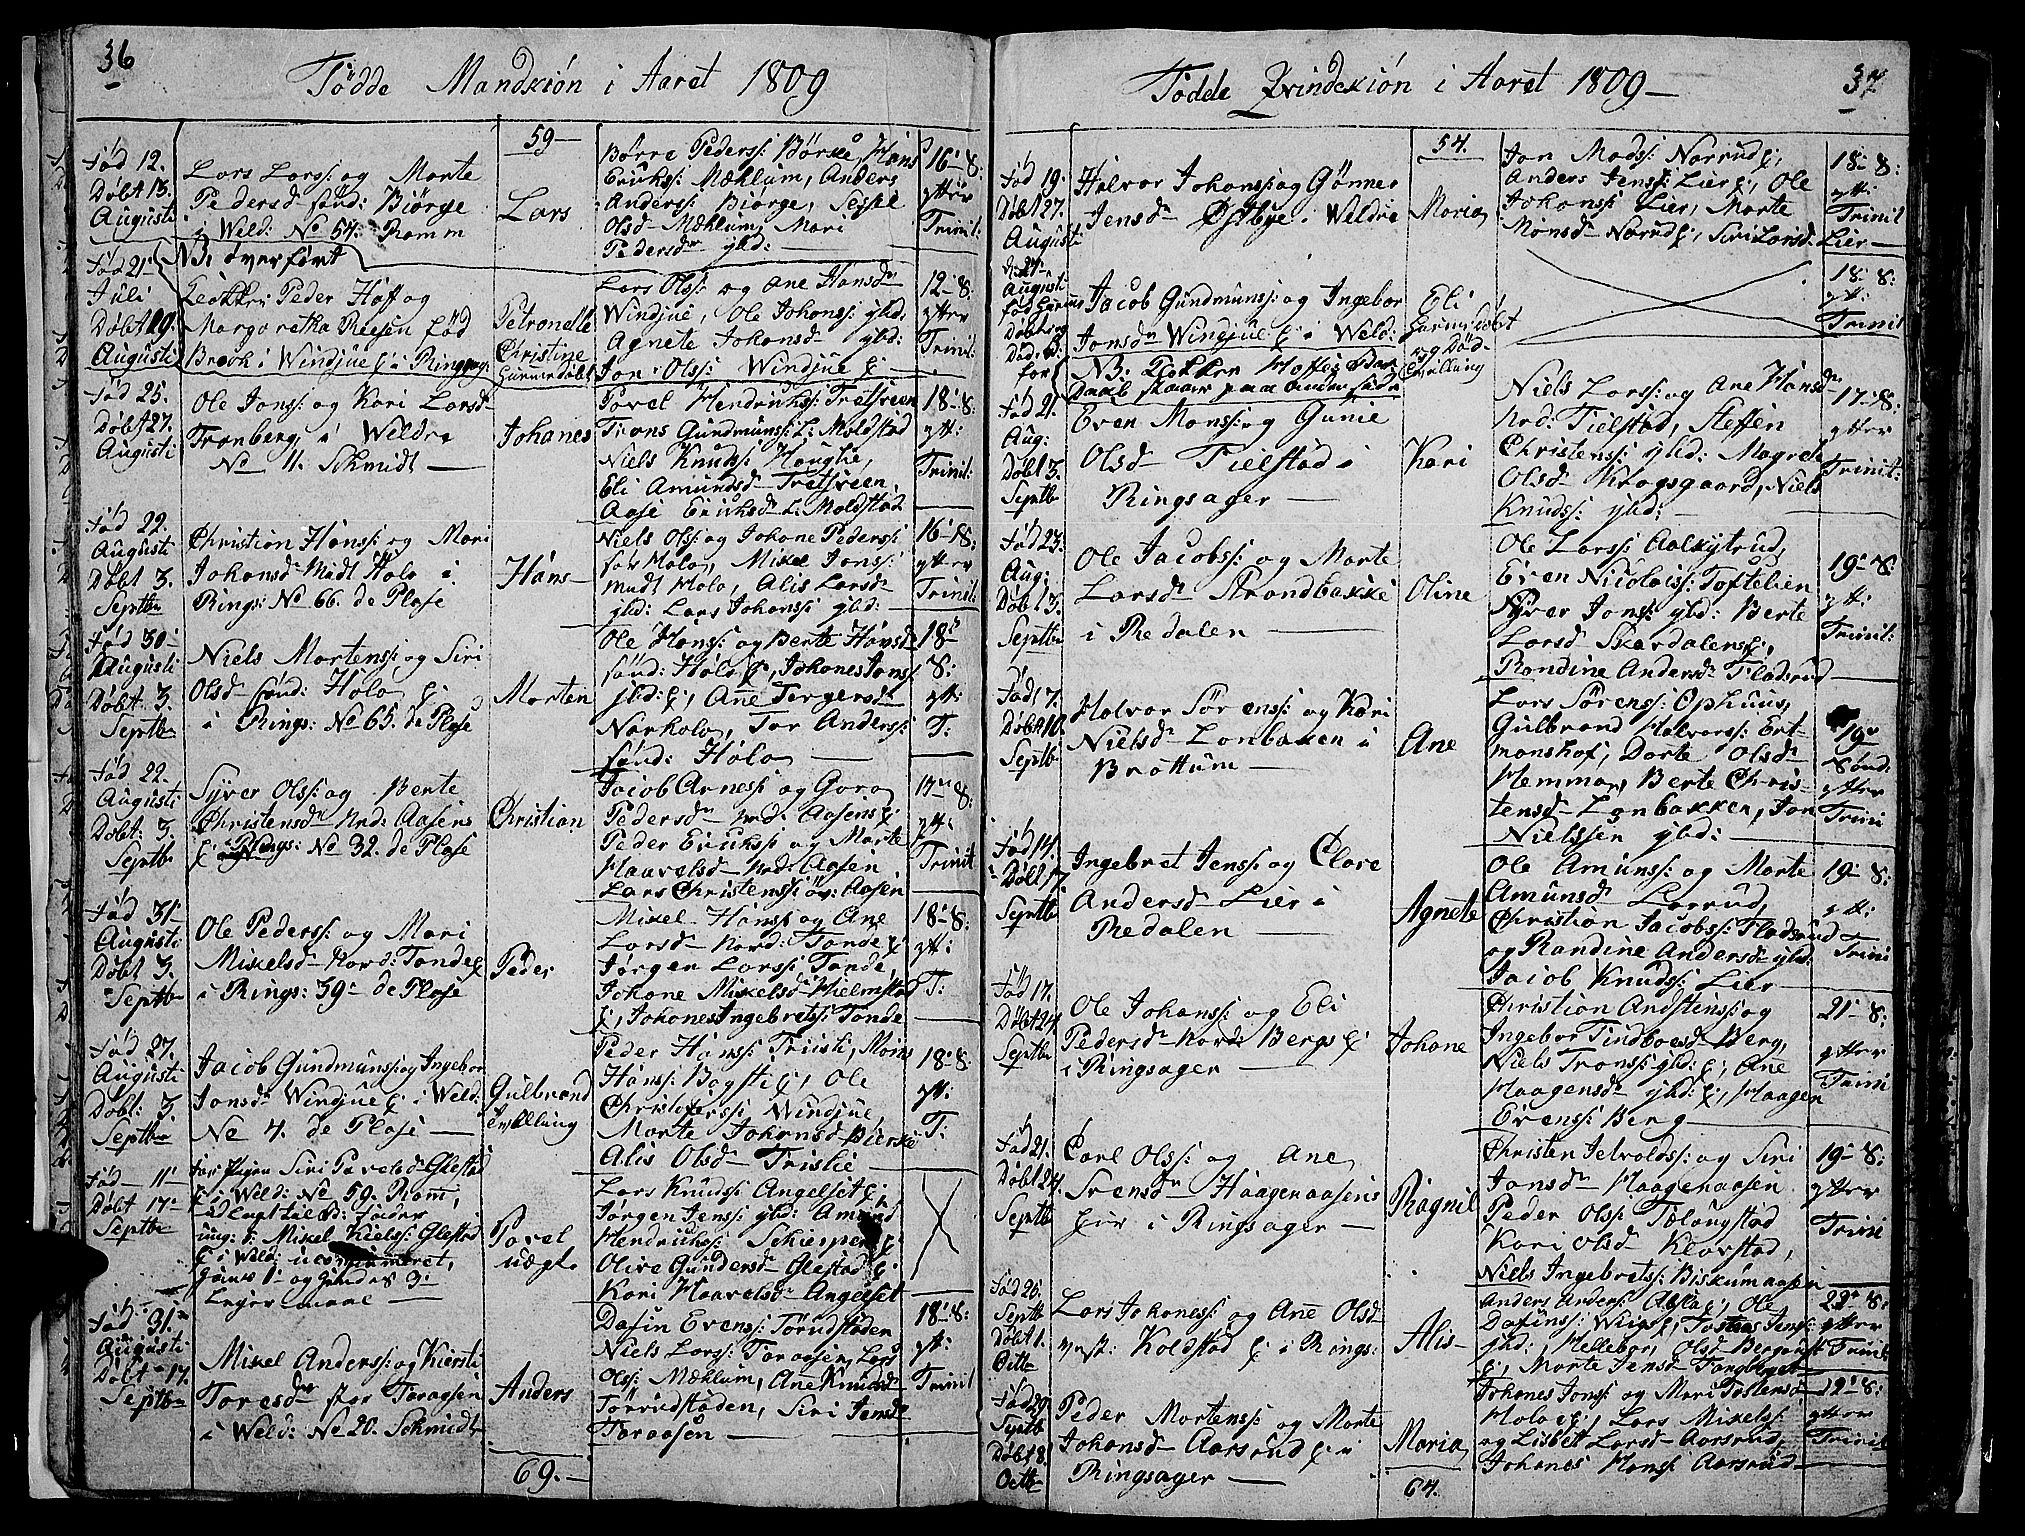 36
Fødde Mandkiøn i Aaret 1809
59
Fød 12.
Døbt 13.
Augusti
Lars Larss: og Marte
Pedersd sønd: Biørge
i Weld: No 54: Ramm
Lars
Børre Peders: Børke, Hans
Eriks: Mæhlum, Anders
Anderss: Biørge, Sessel
Olsd Mæhlum, Mari
Pedersdr ybd:
16-8:
ytter
Trinit:
Fød 21
Juli
Døbt 19.
Augusti
NB. overført
Klokker Peder Hoff og
Margaretha Reesen fød
Brock i Windjue E: i Ringsag:
Petronelle
Christine
hiemmedøbt
Lars Olss: og Ane Hansd
Windjue, Ole Johans: ybd:
Agnete Johansd ybd:
Jon Olss: Windjue E:
12-8:
ytter
Trinit:
Fød 25.
Døbt 27.
Augusti
Ole Jonss: og Kari Larsd
Tranberg, i Weldre
No 11. Schmidt
Johanes
Povel Hendrichs: Tretsveen
Trons Gundmuns: L: Moldstad
Niels Knuds: Houglie,
Eli Amundsd Tretsveen,
Aase Eriksd L: Moldstad
18-8:
ytt:
Trinit:
Fød 22.
Augusti
Døbt 3.
Septbr
Christian Hanss: og Mari
Johansd Midt Holo i
Rings: No 66. de Plase
Hans
Niels Olss: og Johane Peders:
sør Holo, Mikel Jons:
midt Holo, Alis Larsd
ybd: Lars Johans: ybd:
16-18:
ytter
Trinit:
Fød 30
Augusti
Døbt 3.
Septbr
Niels Martenss: og Siri
Olsd sønd: Holo E:
i Rings: No 65. de Plase
Morten
Ole Hanss: og Berte Hansd
sønd: Holo E:, Johanes Jons:
ybd: E:, Ane Tergersd
Norholo, Tor Anders:
sønd: Holo
18-
8:
ytt:
T:
Fød 22.
Augusti
Døbt: 3.
Septbr
Syver Olss: og Berte
Christensdr nrd: Aasens
E: i Rings: No 32. de Plase
Christian
Jacob Arness: og Goro
Pedersd nrd: Aasens E:
Peder Erikss: og Marte
Haavelsd nrd: Aasen
Lars Christenss: ov: Aasen
17-8:
ytt:
Trinit
Fød 31
Augusti
Døbt 3.
Septbr
Ole Pederss: og Mari
Mikelsd Nord: Tande E:
i Rings: 39. de Plase
Peder
Mikel Hanss: og Ane
Larsd Nord: Tande E:
Jørgen Larss: Tande,
Johane Mikelsd Hielmstad
E:, Johanes Ingebrets: Tande
18-8:
ytt:
T:
Fød 27.
Augusti
Døbt: 3.
Septbr
Jacob Gundmuns: og Ingebor
Jonsd Windjue E: i Weld:
No 4. de Plase
Gulbrand
Tvillung
Peder Hanss: Tristi, Mons
Hanss: Bagsti E:, Ole
Christofers: Windjue,
Marte Johansd Bierke
Alis Olsd Trislie
18-8:
ytt:
T:
Fød 11
Døbt 17
Septbr
Pigen Siri Povelsd Glestad
E: i Weld: No 59. Ram,
ung: k: Mikel Niels: Glestad
E: i Weld:
Leiermaal
Povel
uægt.
Lars Knuds: Angelset E:
Jørgen Jenss: ybd: Amund
Hendriks: Schiesper E:
Olive Gundersd Glestad E:
Kari Haavelsd Angelset
Fød 31
Augusti
Døbt 17.
Septbr
Mikel Anderss: og Kiersti
Toresdr stor Toraasen
i Weld: No 20. Schmidt
Anders
Dafin Evenss: Torudstaden
Niels Larss: Toraasen, Lars
Olss: Mæhlum, Ane Knudsd
Torrudstaden, Siri Jensd
Toraasen
18-8:
ytt:
Trinit
69.
37
Fødde Qvindekiøn i Aaret 1809
54.
Fød 19.
Døbt 27.
Augusti
Halvor Johans: og Gønner
Jensd Østbye i Weldre
Maria
Jon Mads: Norrud E:,
Anders Jens: Lier E:, Ole
Johans: Lier, Marte
Monsd Norud E:, Siri Larsd
Lier
18-8:
ytt:
Trinit
d: 27
Augusti
Jacob Gundmunss: og Ingebor
Jonsdr Windjue E: i Weld:
Eli
hiemmedøbt
og død
Tvillung
18-8:
ytt:
Trinit
NB. Klokker Hoffs Barn
Daab staaer paa anden side
Fød 21.
Aug:
Døbt 3.
Septbr
Even Monss: og Gunie
Olsd Tielstad i
Ringsager
Kari
Niels Larss: og Ane Hansd
nrd: Tielstad, Steffen
Christens: ybd: Magrete
Olsd Krogsgaard, Niels
Knuds: ybd:
17-18:
ytter
Trinit:
Fød 23.
Aug:
Døbt 3.
Septbr
Ole Jacobss: og Marte
Larsd Strandbakke
i Redalen
Oline
Ole Larss: Aalkytrud,
Even Nicolais: Toftelien
Syver Jons: ybd: Berte
Larsd Skardalen E:,
Randine Andersd Fladsrud
19-8
ytt:
Trinit:
Fød 7.
Døbt 10.
Septbr
Halvor Sørenss: og Kari
Nielsd Lonbaken i
Brøttum
Ane
Lars Sørens: Ophuus,
Gulbrand Halvors: Ert-
manshof, Dorte Olsd
Hemma, Berte Chris-
tensd Lonbakken, Jon
Nielssen ybd:
19
Sønd:
ytter
Trini
Fød 14.
Døbt 17.
Septbr
Ingebret Jenss: og Clare
Andersd Lier i
Redalen
Agnete
Ole Amuns: og Marte
Amunsd Larrud,
Christian Jacobs: Fladsrud
og Randine Andersd ybd:
Jacob Knuds: Lier
19-8:
ytt:
Trini
Fød 17.
Døbt 24.
Septbr
Ole Johanss: og Eli
Pedersd Nord: Bergs E:
i Ringsager
Johane
Christian Andstens: og
Ingebor Tindboesd Berg,
Niels Trons: ybd: E:, Ane
Haagensd ybd: E:, Haagen
Evens: Berg
21-8:
ytter
Trini
Fød 21.
Døbt 24.
Septbr
Carl Olss: og Ane
Svensd Haagenaasens
Eier i Ringsager
Ragnil
Christen Jelvolds: og Siri
Jonsd Haagenaasen
Peder Olss: Tølangstad
Kari Olsd Klavstad,
Niels Ingebrets: Biskumaasen
19-8:
ytter
Trini
Fød 26.
Septbr
Døbt 1.
Octbr
Lars Johaness: og Ane Olsd
vest: Koldstad E: i Rings:
Alis
22-8:
ytter
Trinit:
Fød 29.
Septbr
Døbt 8.
Octbr
Peder Martenss: og Marte
Johansd Aarsrud E: i
Ringsager
Maria
Johanes Jons: og Mari Tostensd
Holo E:, Lars Mikels:
og Lisbet Larsd Aarsrud,
Johanes Hans: Aarsrud
12-8:
ytter
Trinit
64.